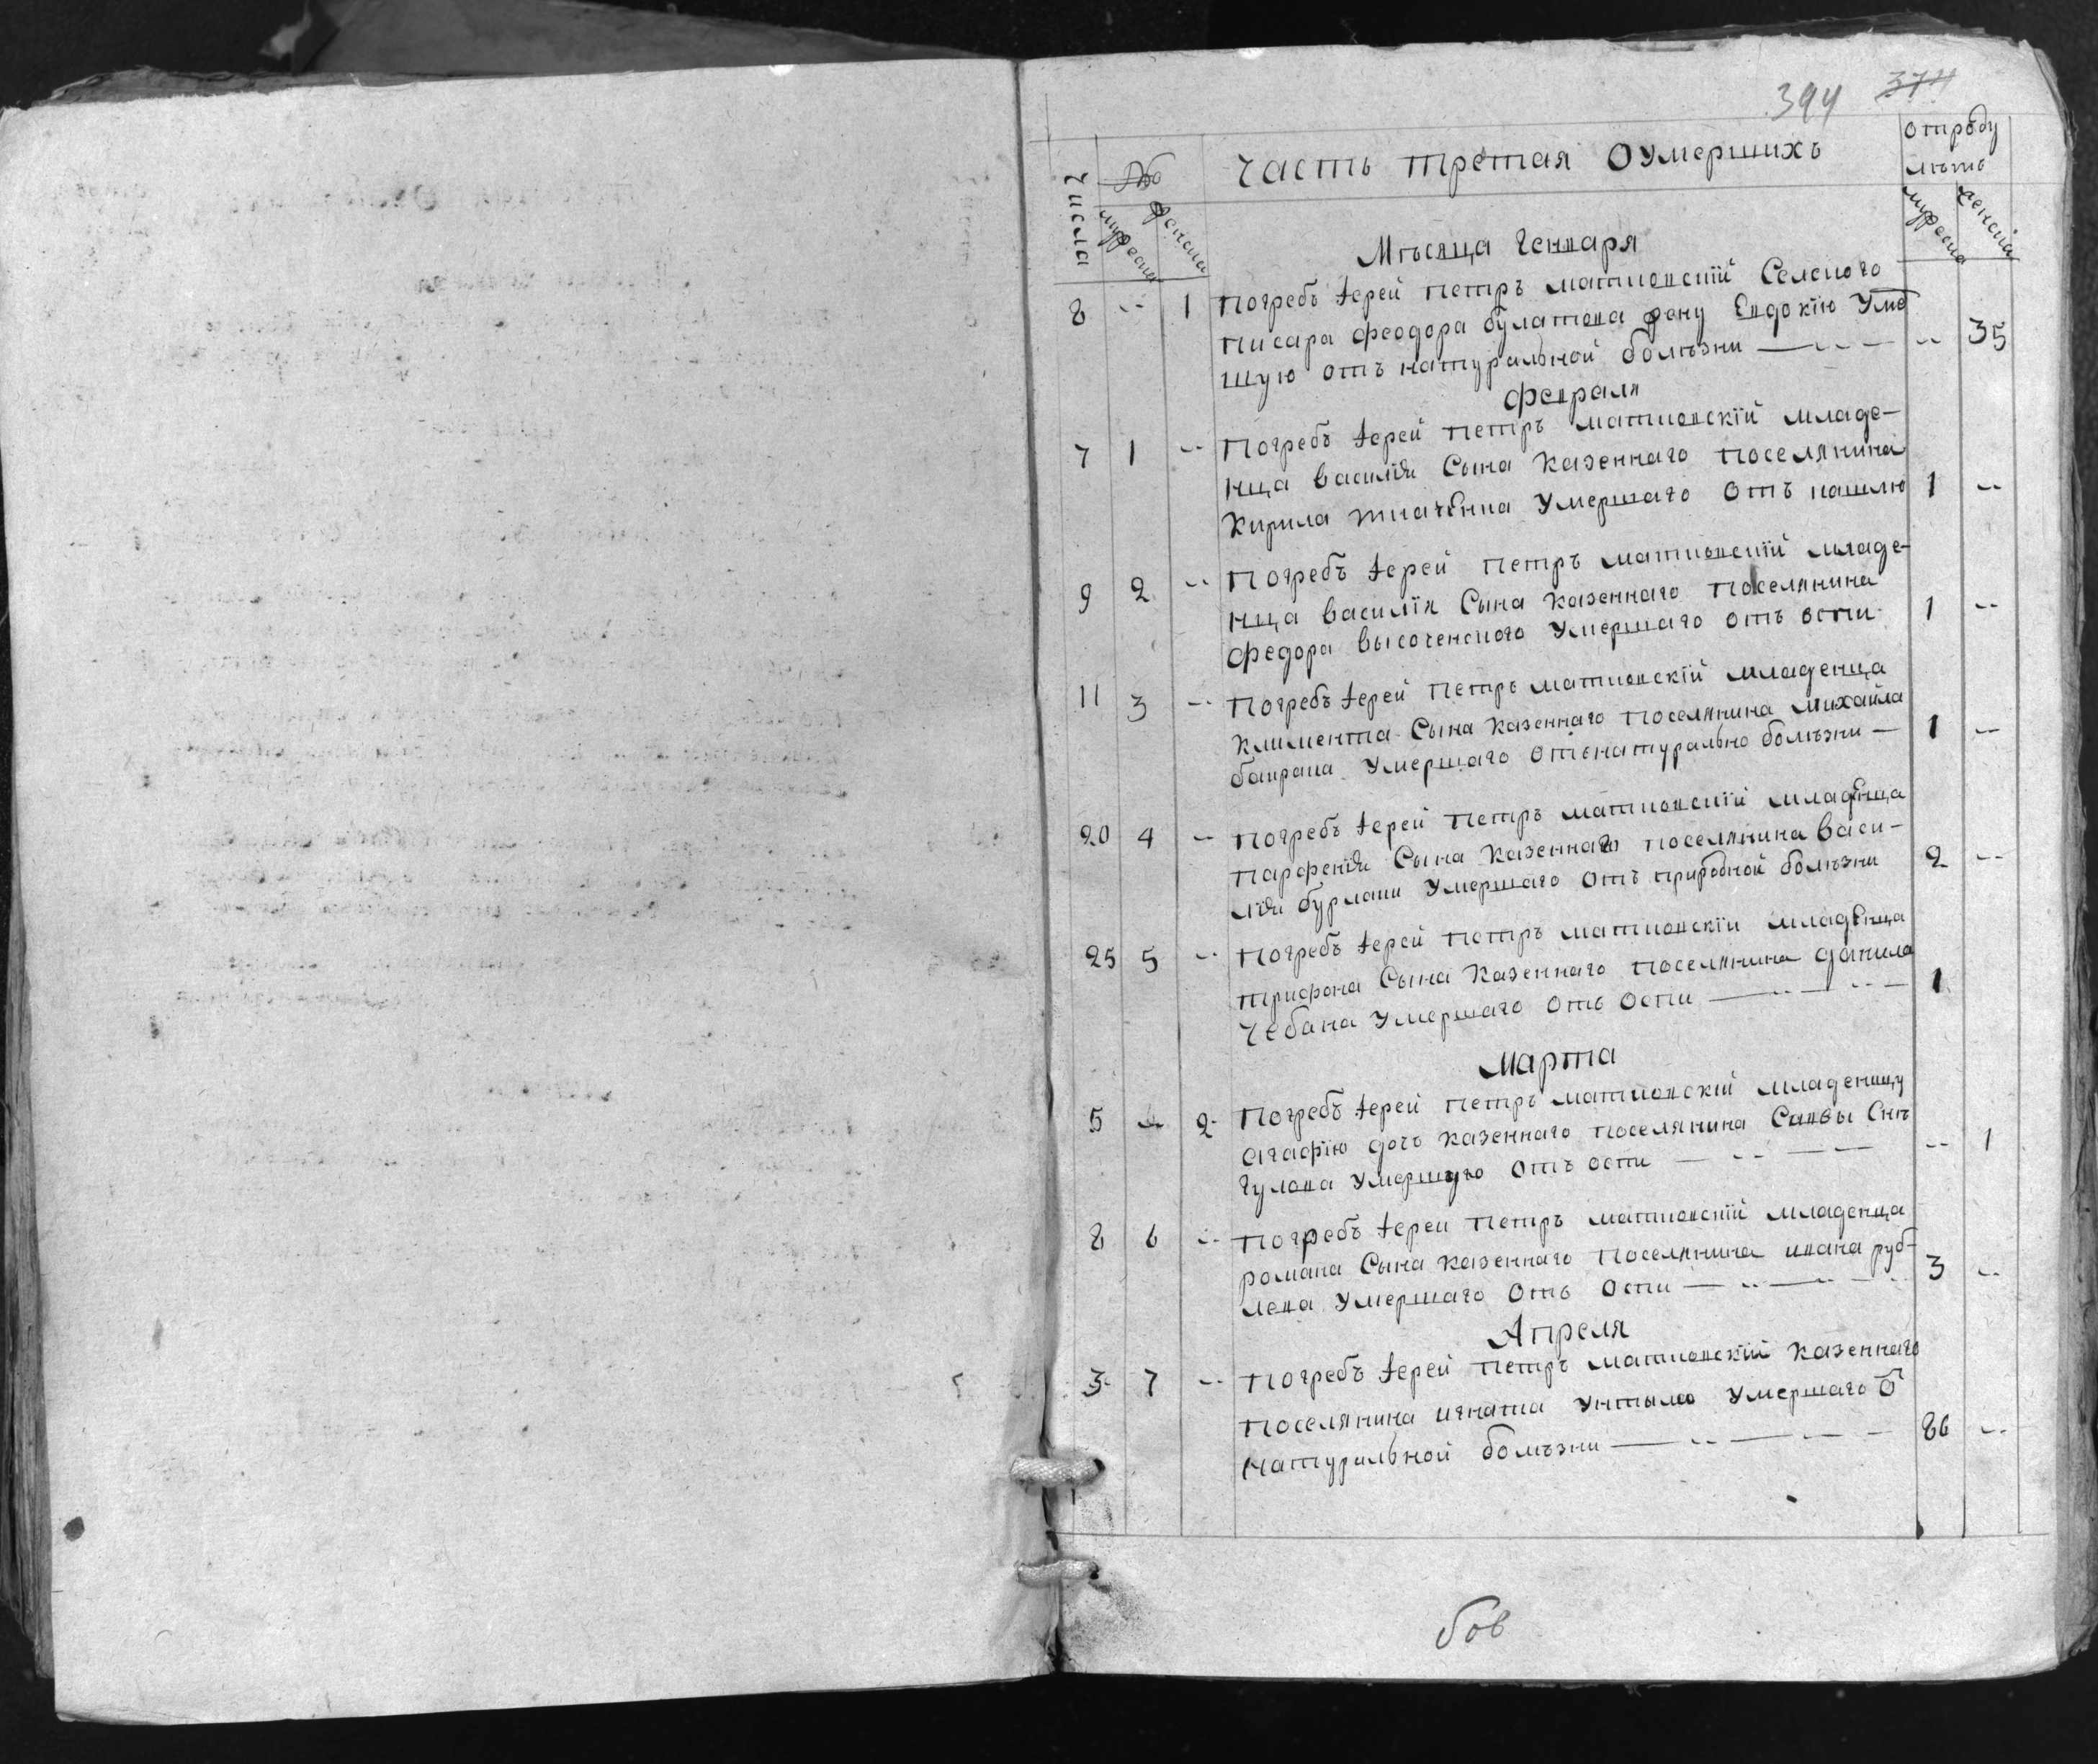 394 374
Числа
№
мужеска
женска
Часть третая Оумершихъ
отроду
лѣтъ
мужеска
женска
Мѣсяца Генваря
8 -- 1 Погребъ Іерей Петръ матковскій Селского
писара Феодора булатова жену Евдокію Умер
шую отъ натуральной болѣзни -- 35
Февраля
7 1 -- Погребъ Іерей Петръ матковскій младе-
нца василія Сына Казеннаго Поселянина
Кирила ткаченка Умершаго Отъ кашлю 1 --
9 2 -- Погребъ Іерей Петръ матковскій младе-
нца василія Сына Казеннаго Поселянина
Федора высоченского Умершаго отъ оспи 1 --
11 3 -- Погребъ Іерей Петръ матковскій младенца
Климента Сына Казеннаго Поселянина михайла
Умершаго Отънатурально болѣзни — 1 --
20 4 -- Погребъ Іерей Петръ матковскій младенца
Парфенія Сына Казеннаго поселянина васи-
лія бурлаки Умершаго Отъ природной болѣзни 2 --
25 5 -- Погребъ Іерей Петръ матковскій младенца
трифона Сына Казеннаго поселянина данила
Чебана Умершаго Отъ Оспи 1
Марта
5 -- 2 Погребъ Іерей Петръ матковскій младеницу
Агафію доч Казеннаго поселянина Саввы Сни
гулова Умершую Отъ оспи -- 1
8 6 -- Погребъ Іерей Петръ матковскій младенца
романа Сына Казеннаго Поселянина ивана руб-
лева Умершаго Отъ Оспи 3 --
Апреля
3 7 -- Погребъ Іерей Петръ матковскій Казеннаго
Поселянина игната Унтыло Умершаго Ѿ
натуральной болѣзни 86 --